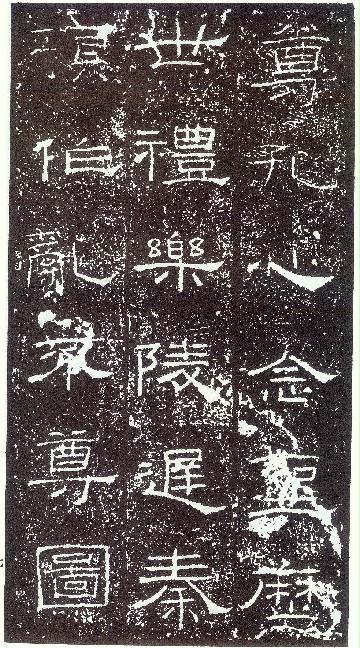 尊孔心念聖歷
世禮樂陵遲秦
項作亂不尊圖